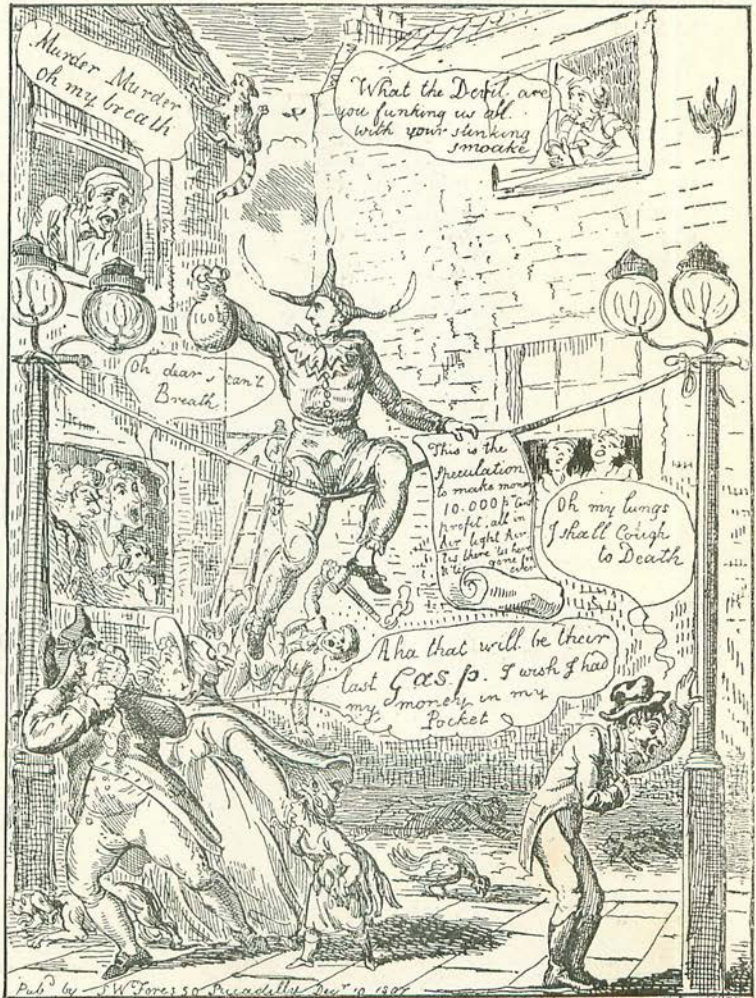 Murder Murder
oh my breath
What the Devil are
you funking us all
with your stinking
smoake
1600
Oh dear I can't
Breath
This is the
Speculation
to make money
10.000 pr Cent
profit. all in
Air light Air
tis there 'tis here
& 'tis gone for
ever
Oh my lungs
I shall Cough
to Death
Aha that will be their
last Gas.p. I wish I had
my money in my
Pocket
Pubd by S W Fores 50 Piccadilly Decr